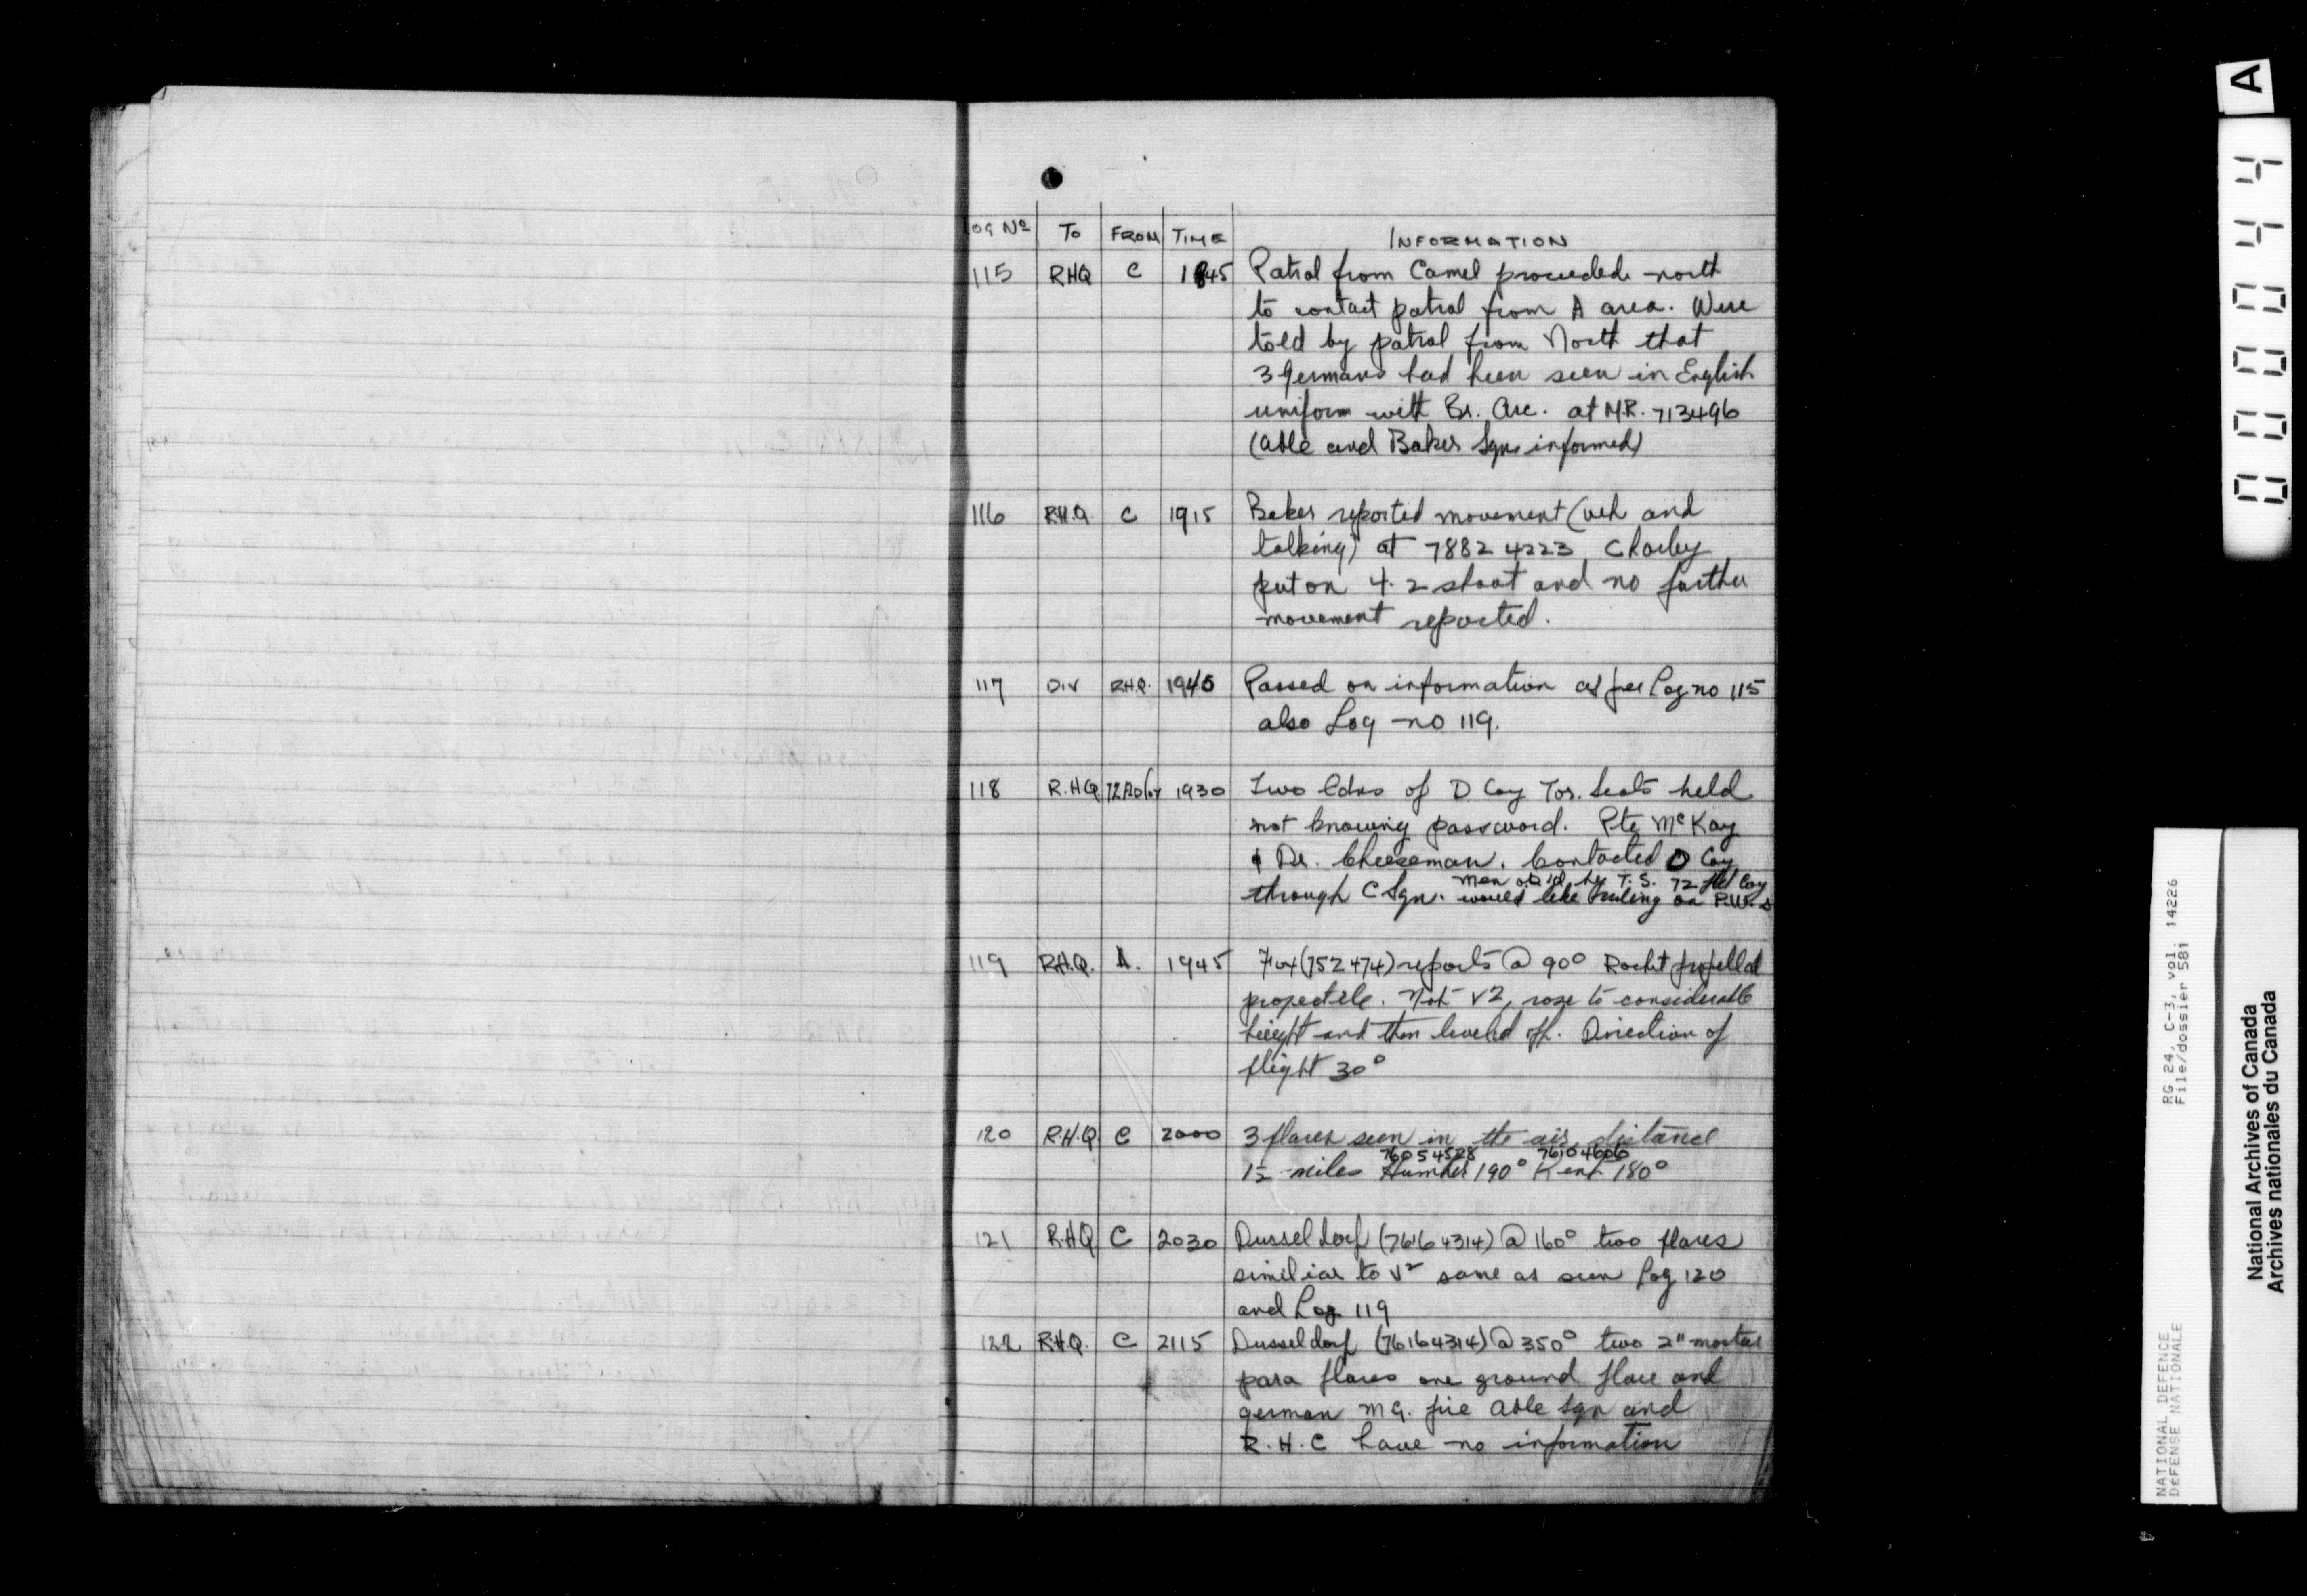 og No To FROM TIME INFORMATION
115 RHQ C 1845 Patrol from Camel proceeded north
to contact patrol from A area. Were
told by patrol from North that
3 Germans had been seen in English
uniform with Br. Arc. at M.R. 713496
(Able and Baker Sqns informed)
116 R.H.Q. C 1915 Baker reported movement (veh and
talking) at 7882 4223 Charley
put on 4.2 shoot and no further
movement reported.
117 DIV R.H.Q. 1945 Passed on information as per Log no 115
also Log no 119.
118 R.HQ 72 Fld Coy 1930 Two Cdns of D Coy Tor. Scots held
not knowing password. Pte McKay
& Dr. Cheeseman. Contacted D Coy
men o.k'd by T.S. 72 fld Coy
through C Sqn. would like ruling on P.W.s
119 R.H.Q. A. 1945 Fox (752474) reports @ 90° Rocket propelled
projectile. Not V2, rose to considerable
height and then leveled off. Direction of
flight 30°
120 R.H.Q C 2000 3 flares seen in the air, distance
76054528 76104606
1½ miles Humber 190° Kent 180°
121 R.HQ C 2030 Dusseldorf (76164314) @ 160° two flares
similiar to V2 same as seen Log 120
and Log 119
122 R.H.Q. C 2115 Dusseldorf (76164314) @ 350° two 2" mortar
para flares one ground flare and
german MG. fire Able Sqn and
R.H.C have no information
A
00000044
RG 24, C-3, vol. 14226
File/dossier 581
NATIONAL DEFENCE
DEFENSE NATIONALE
National Archives of Canada
Archives nationales du Canada